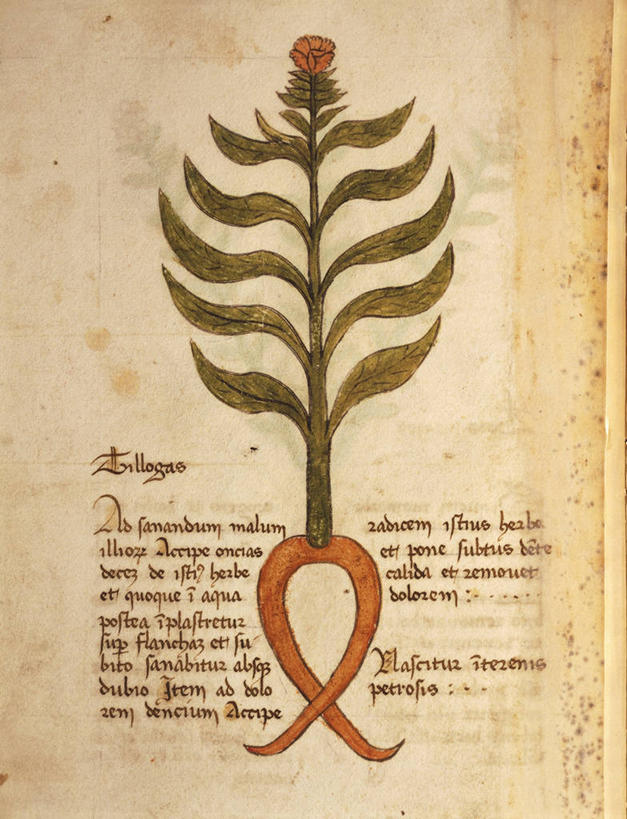 Tillogas
Ad sanandum malum
illioꝝ Accipe oncias
decez de istiꝰ herbe
et quoque ī aqua
postea īplastretur
suꝑ flanchaz et su-
bito sanābitur absqꝫ
dubio Item ad dolo
rem dēncium Accipe
radicem istius herbe
et pone subtus dēte
calida et removet
dolorem :· - - - -
Nascitur īterenis
petrosis : - ·